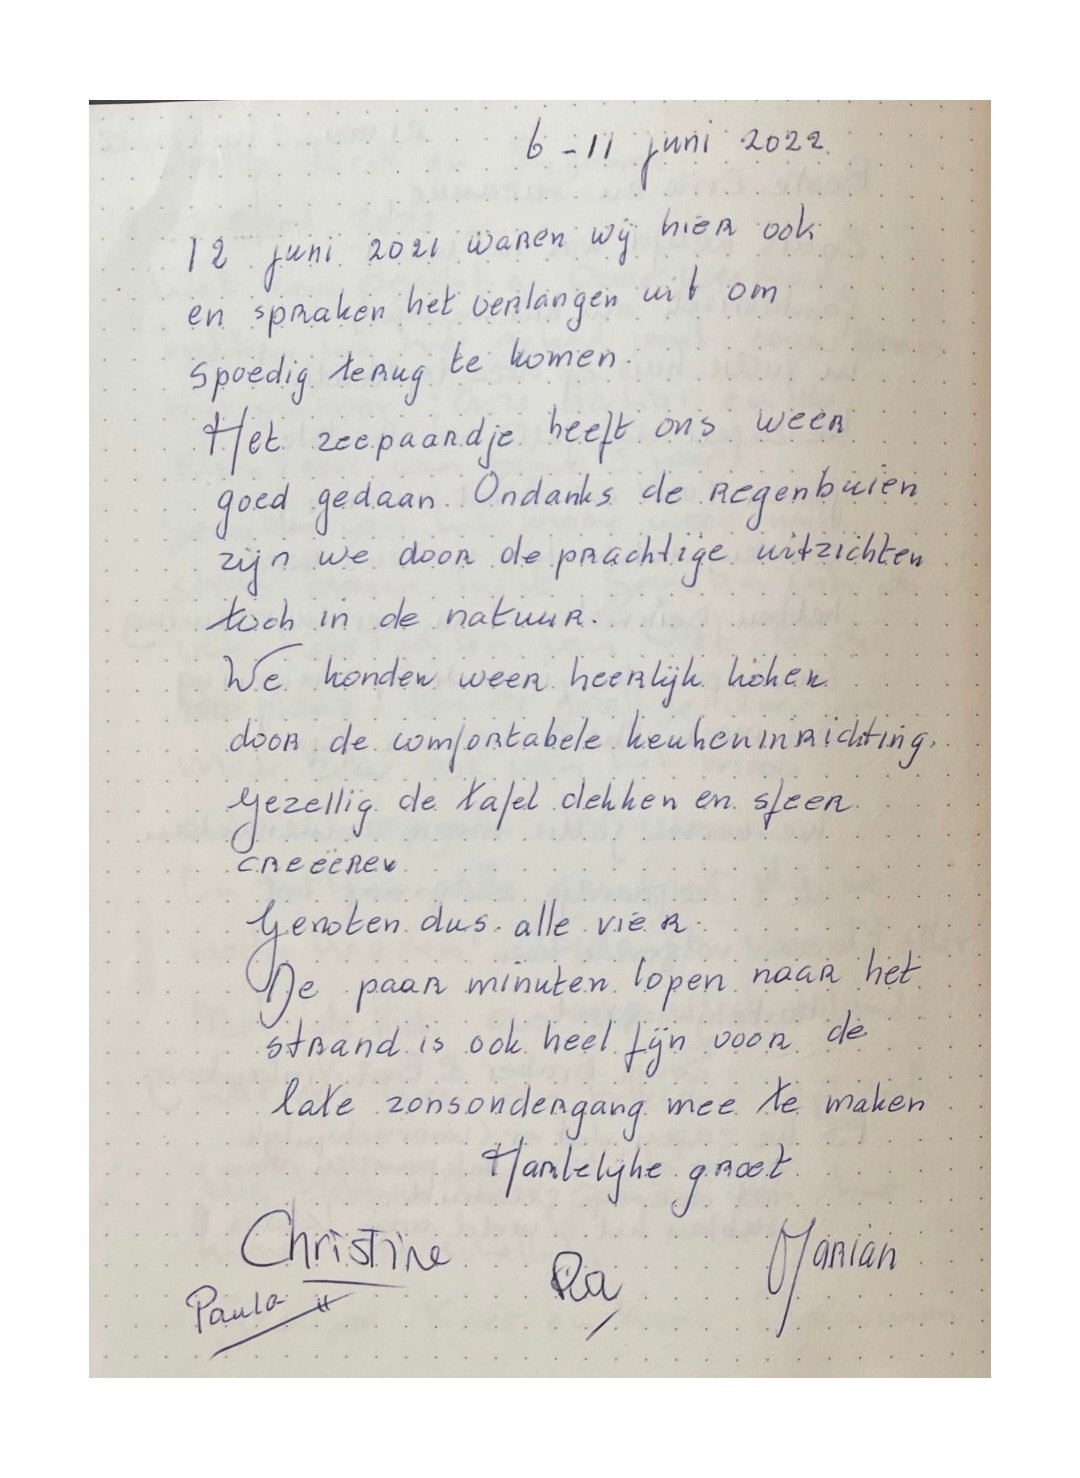 6 - 11 juni 2022.
12 juni 2021 waren wij hier ook
en spraken het verlangen uit om
spoedig terug te komen.
Het zeepaardje heeft ons weer
goed gedaan. Ondanks de regenbuien
zijn we door de prachtige uitzichten
toch in de natuur.
We konden weer heerlijk koken
door de comfortabele keukeninrichting.
Gezellig de tafel dekken en sfeer
creeëren.
Genoten dus. alle vier.
De paar minuten lopen naar het
strand is ook heel fijn voor de
late zonsondergang mee te maken
Hartelijke groet
Christine
Paula
Ria
Marian